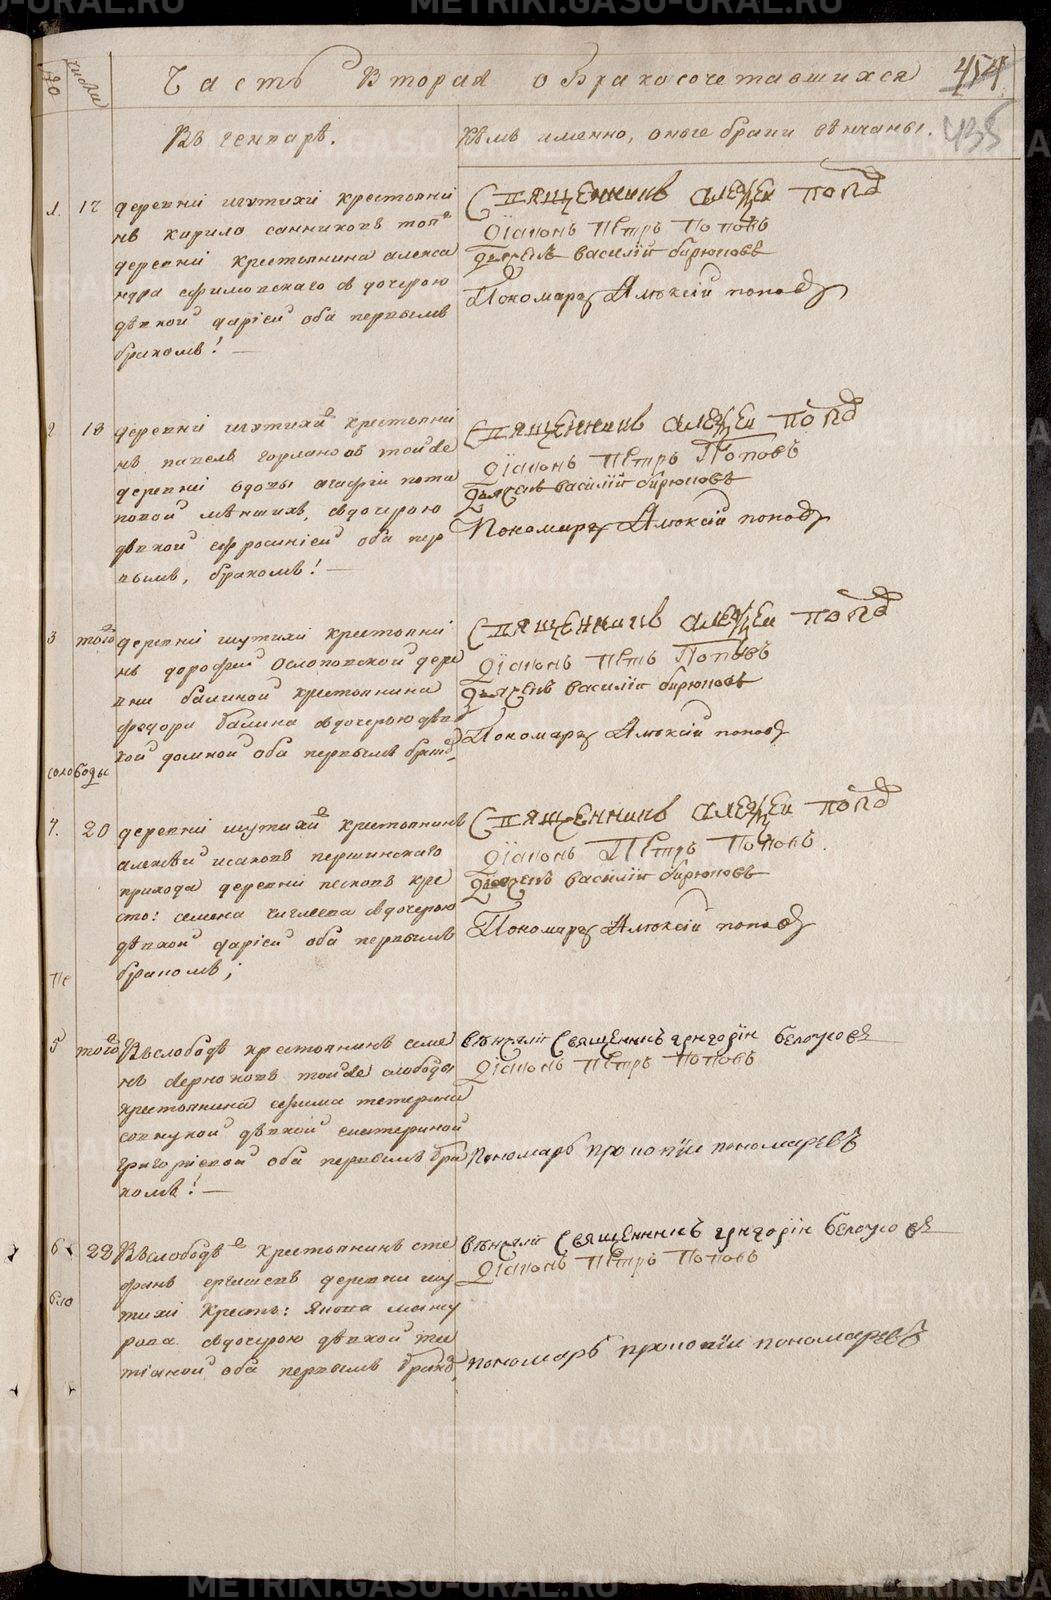 Часть Вторая о бракосочетавшихся 454
435
No числа
Въ генваре. Кемъ именно, оныя браки венчаны.
1. 17 деревни шутихи крестьяни
нъ кирило санниковъ той
деревни крестьянина алекса
ндра ефимовскаго съ дочерою
девкой дарiей оба первымъ
бракомъ! —
Священникъ алексеи поповъ
Дiаконъ Петръ Поповъ
Дьячекъ василiй бирюковъ
Пономарь Алексiй поповъ
2 18 деревни шутихи крестьяни
нъ павелъ горлановъ тойже
деревни вдовы агафiи пота
повой меншихъ, сдочерою
девкой ефросинiей оба пер
вымъ, бракомъ! —
Священникъ алексеи поповъ
Дiаконъ Петръ Поповъ
Дьячекъ василiй бирюковъ
Пономарь Алексiй поповъ
3 того деревни шутихи крестьяни
нъ дорофей Ослоповской дере
вни балиной крестьянина
федора балина сдочерою дев
кой домной оба первымъ брако
слободы
Священникъ алексеи поповъ
Дiаконъ Петь Поповъ
Дьячекъ василiй бирюковъ
Пономарь Алексiй поповъ
4. 20 деревни шутихи крестьянинъ
алексей исаковъ першинскаго
прихода деревни песковъ кре
сто: семена чиглеева сдочерою
девкой дарiей оба первымъ
бракомъ;
Пе
Священникъ алексеи поповъ
Дiаконъ Петръ Поповъ.
Дьячекъ василiй бирюковъ
Пономарь Алексiй поповъ
5 того Въ слободе крестьянинъ семе
нъ черноковъ тойже слободы
крестьянина ефима тетерина
совнукой девкой екатериной
григорiевой оба первымъ бра
комъ! —
венчалъ Священникъ григорiи белоусовъ
Дiаконъ Петръ Поповъ
Пономарь прокопiи пономаревъ
6 22 Въ слободе крестьянинъ сте
фанъ деревни шу
тихи Крестъ: Якова манту
рова сдочерою девкой та
тiаной оба первымъ брако
бло
венчалъ Священникъ григорiи белоусовъ
Дiаконъ Петръ Поповъ
пономарь прокопiи пономаревъ
METRIKI.GASO-URAL.RU